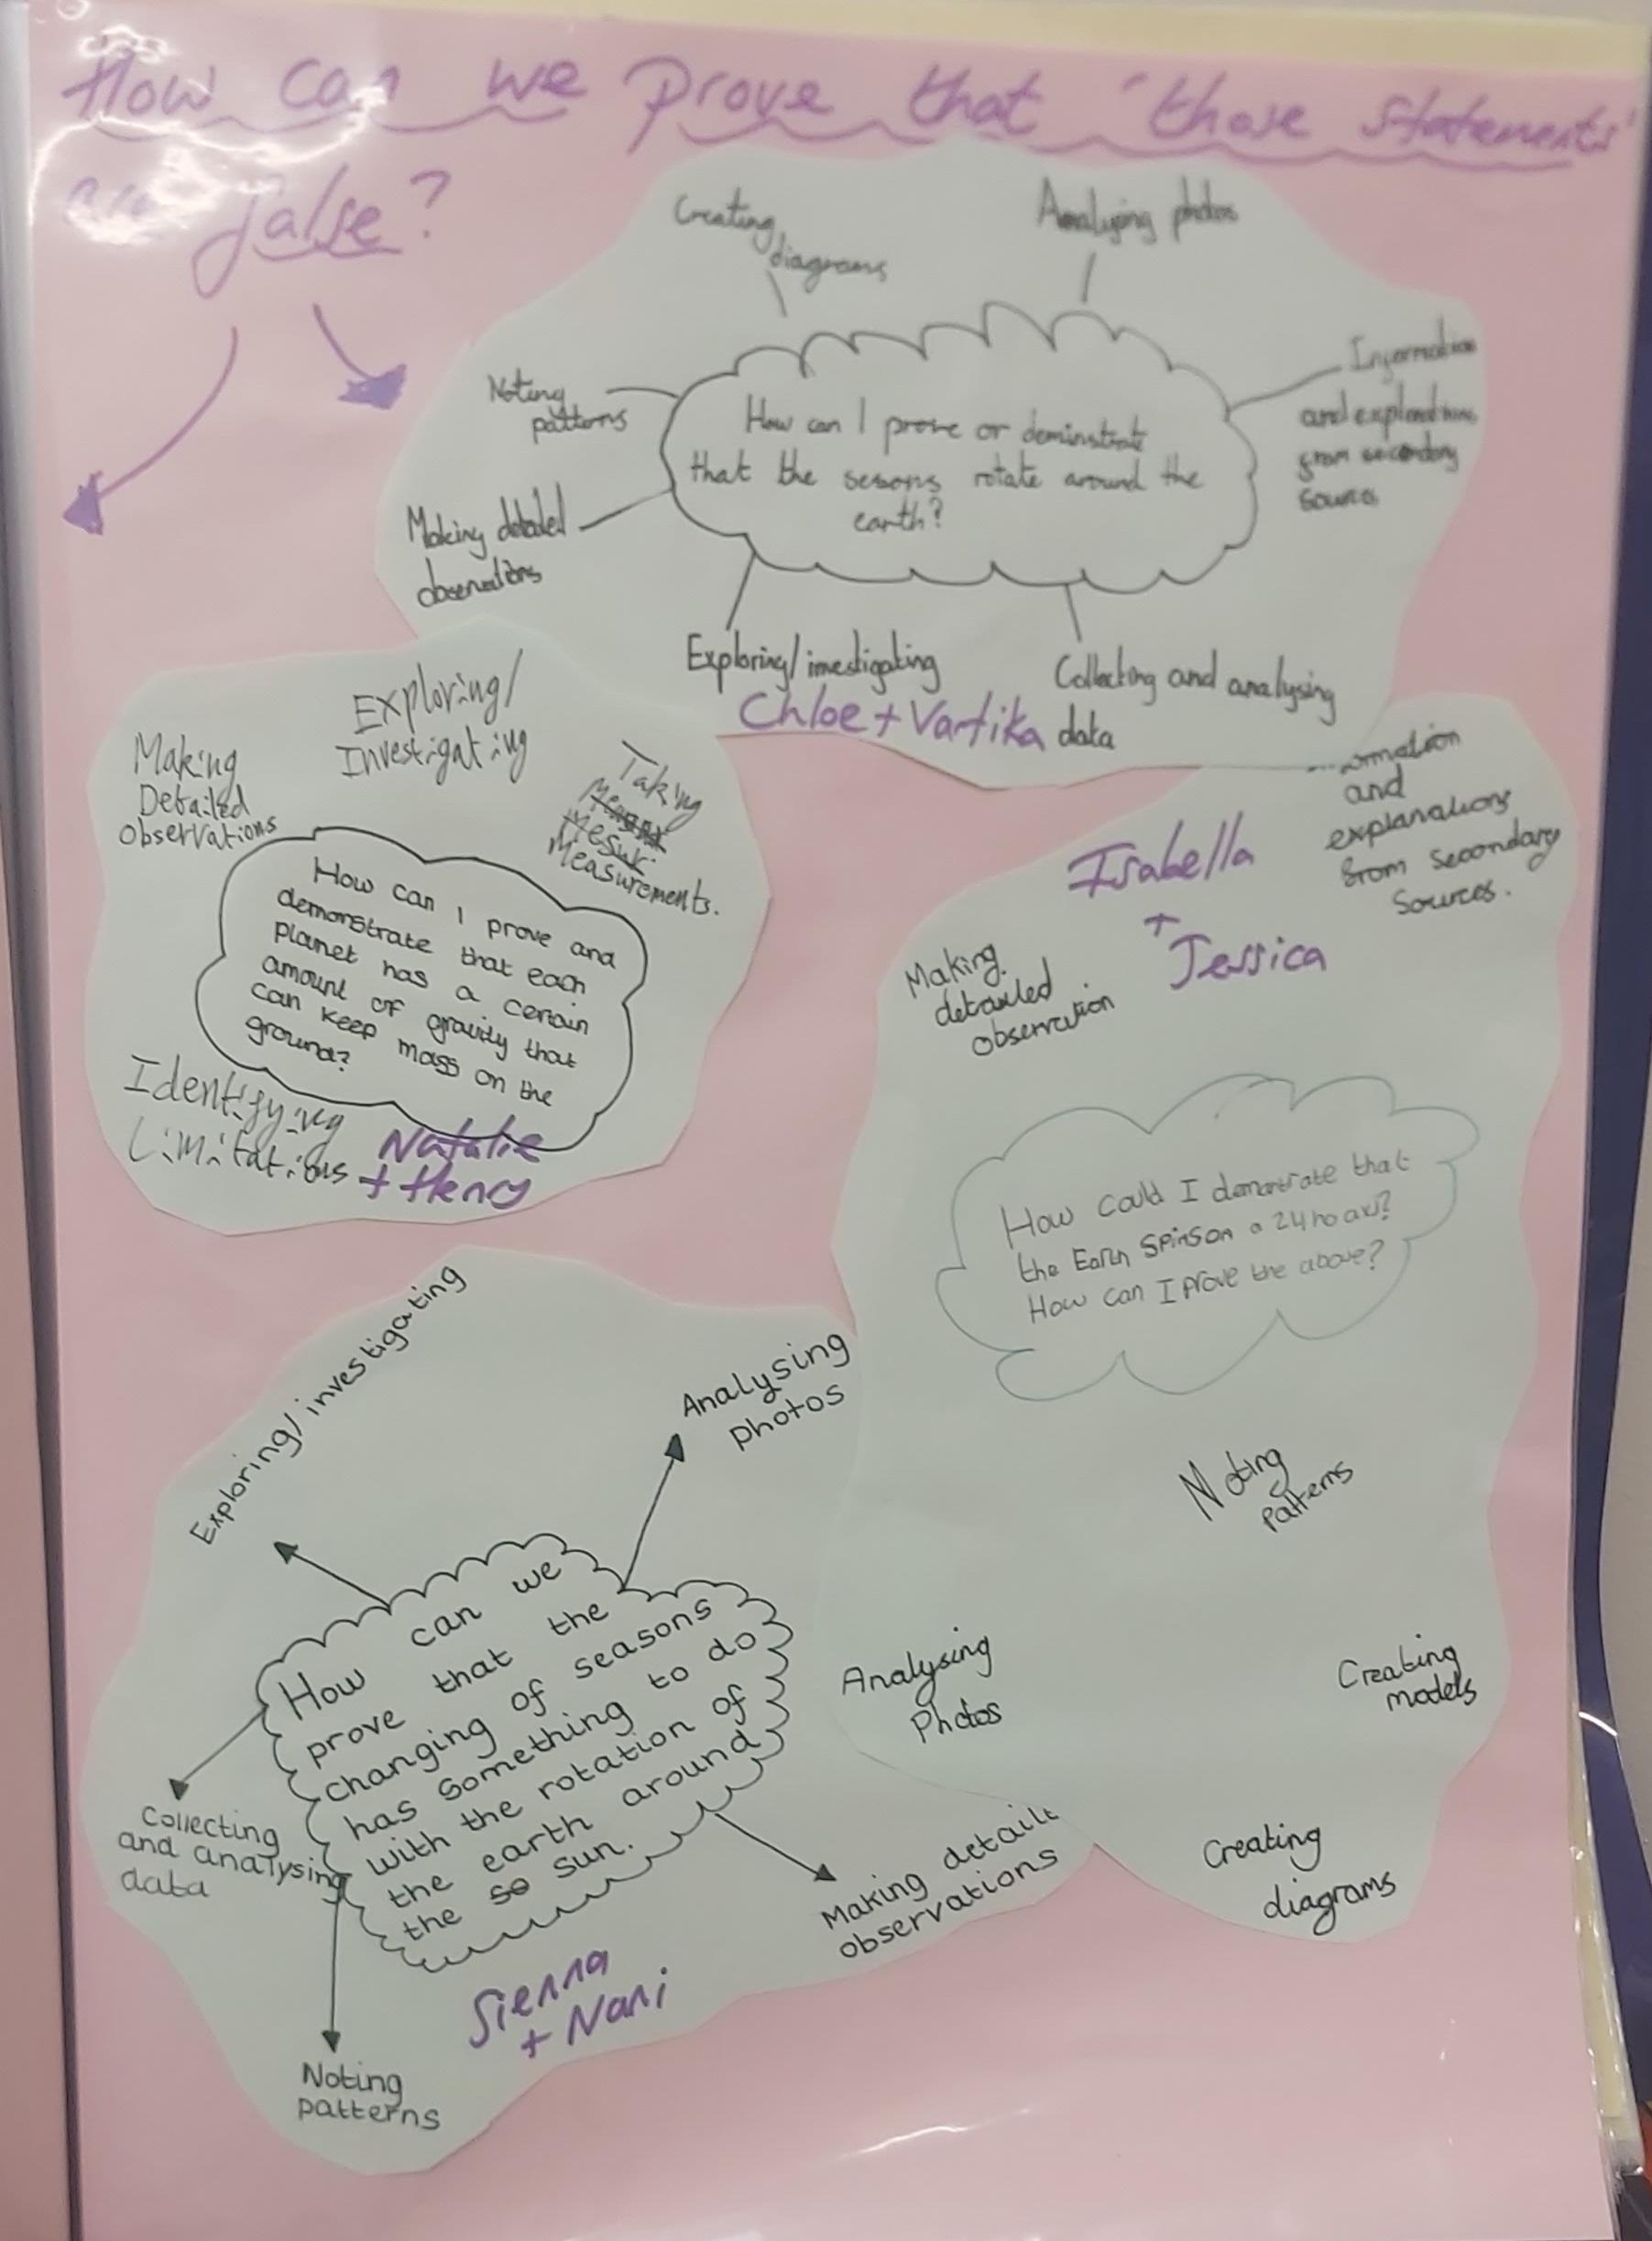 How can we prove that 'those statements'
are false?
Creating
diagrams
Analysing photos
Noting
patterns
Information
and explanations
from secondary
sources
How can I prove or deminstrate
that the sesons rotate around the
earth?
Making detailed
observations
Exploring/investigating
Collecting and analysing
data
Chloe + Vartika
Exploring/
Investigating
Making
Detailed
Observations
Taking
Mesur
Measurements.
How can I prove and
demonstrate that each
planet has a certain
amount of gravity that
can keep mass on the
ground?
Identifying
Limitations
Natalie
+ Henry
Isabella
+
Jessica
ormation
and
explanations
from secondary
sources.
Making
detailed
observation
How could I demontrate that
the Earth spins on a 24 ho axi?
How can I prove the above?
Noting
patterns
Analysing
Photos
Creating
models
Creating
diagrams
Exploring/investigating
Analysing
photos
How can we
prove that the
changing of seasons
has something to do
with the rotation of
the earth around
the so sun.
Collecting
and analysing
data
Making detaile
observations
Noting
patterns
Sienna
+ Nani